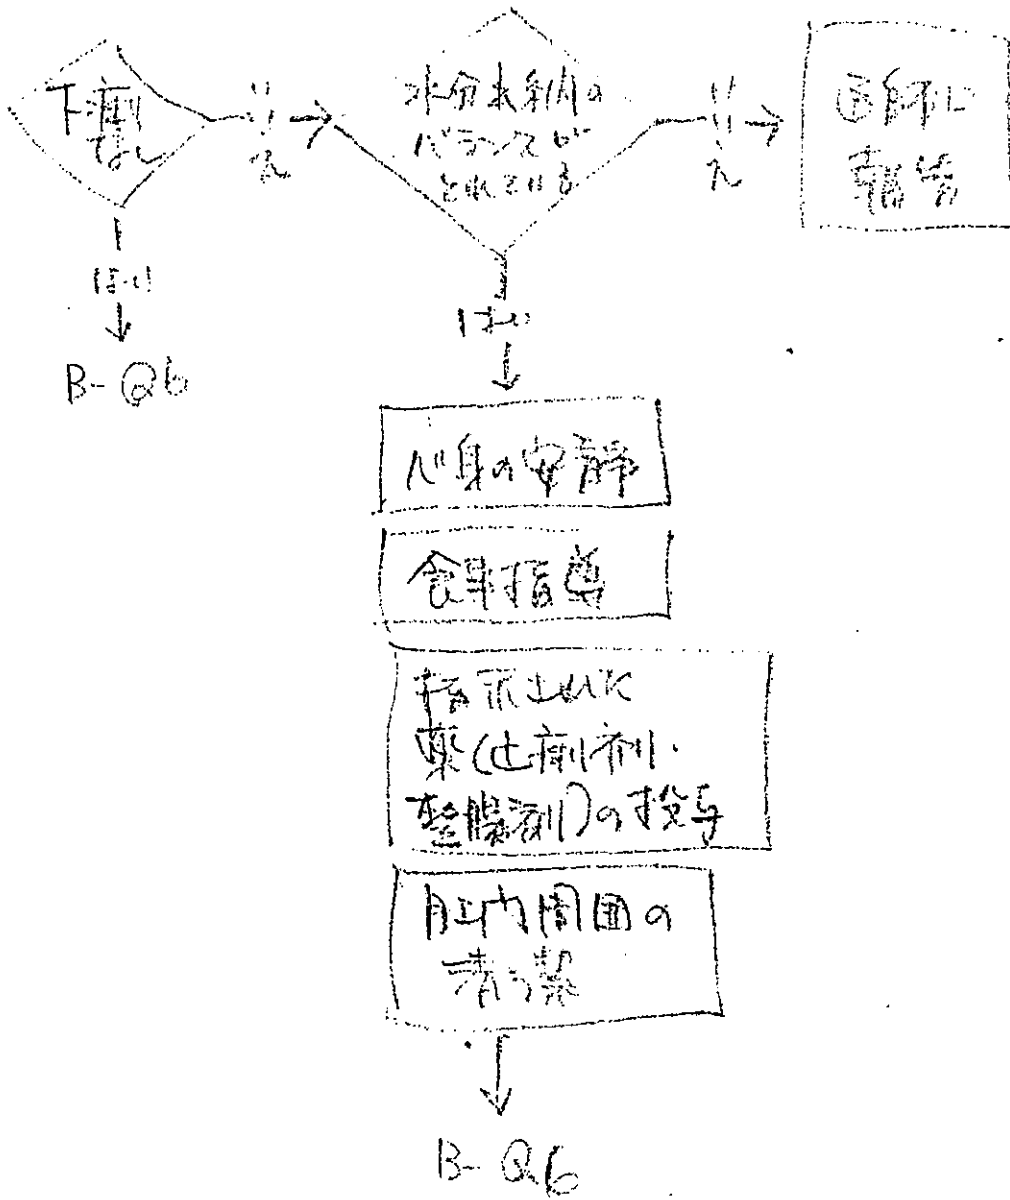 下痢
なし
いいえ
水分出納の
バランスが
とれている
いいえ
医師に
報告
はい
はい
B-Q6
心身の安静
食事指導
指示止めに
薬(止痢剤・
整腸剤)の投与
肛門周囲の
清潔
B-Q6